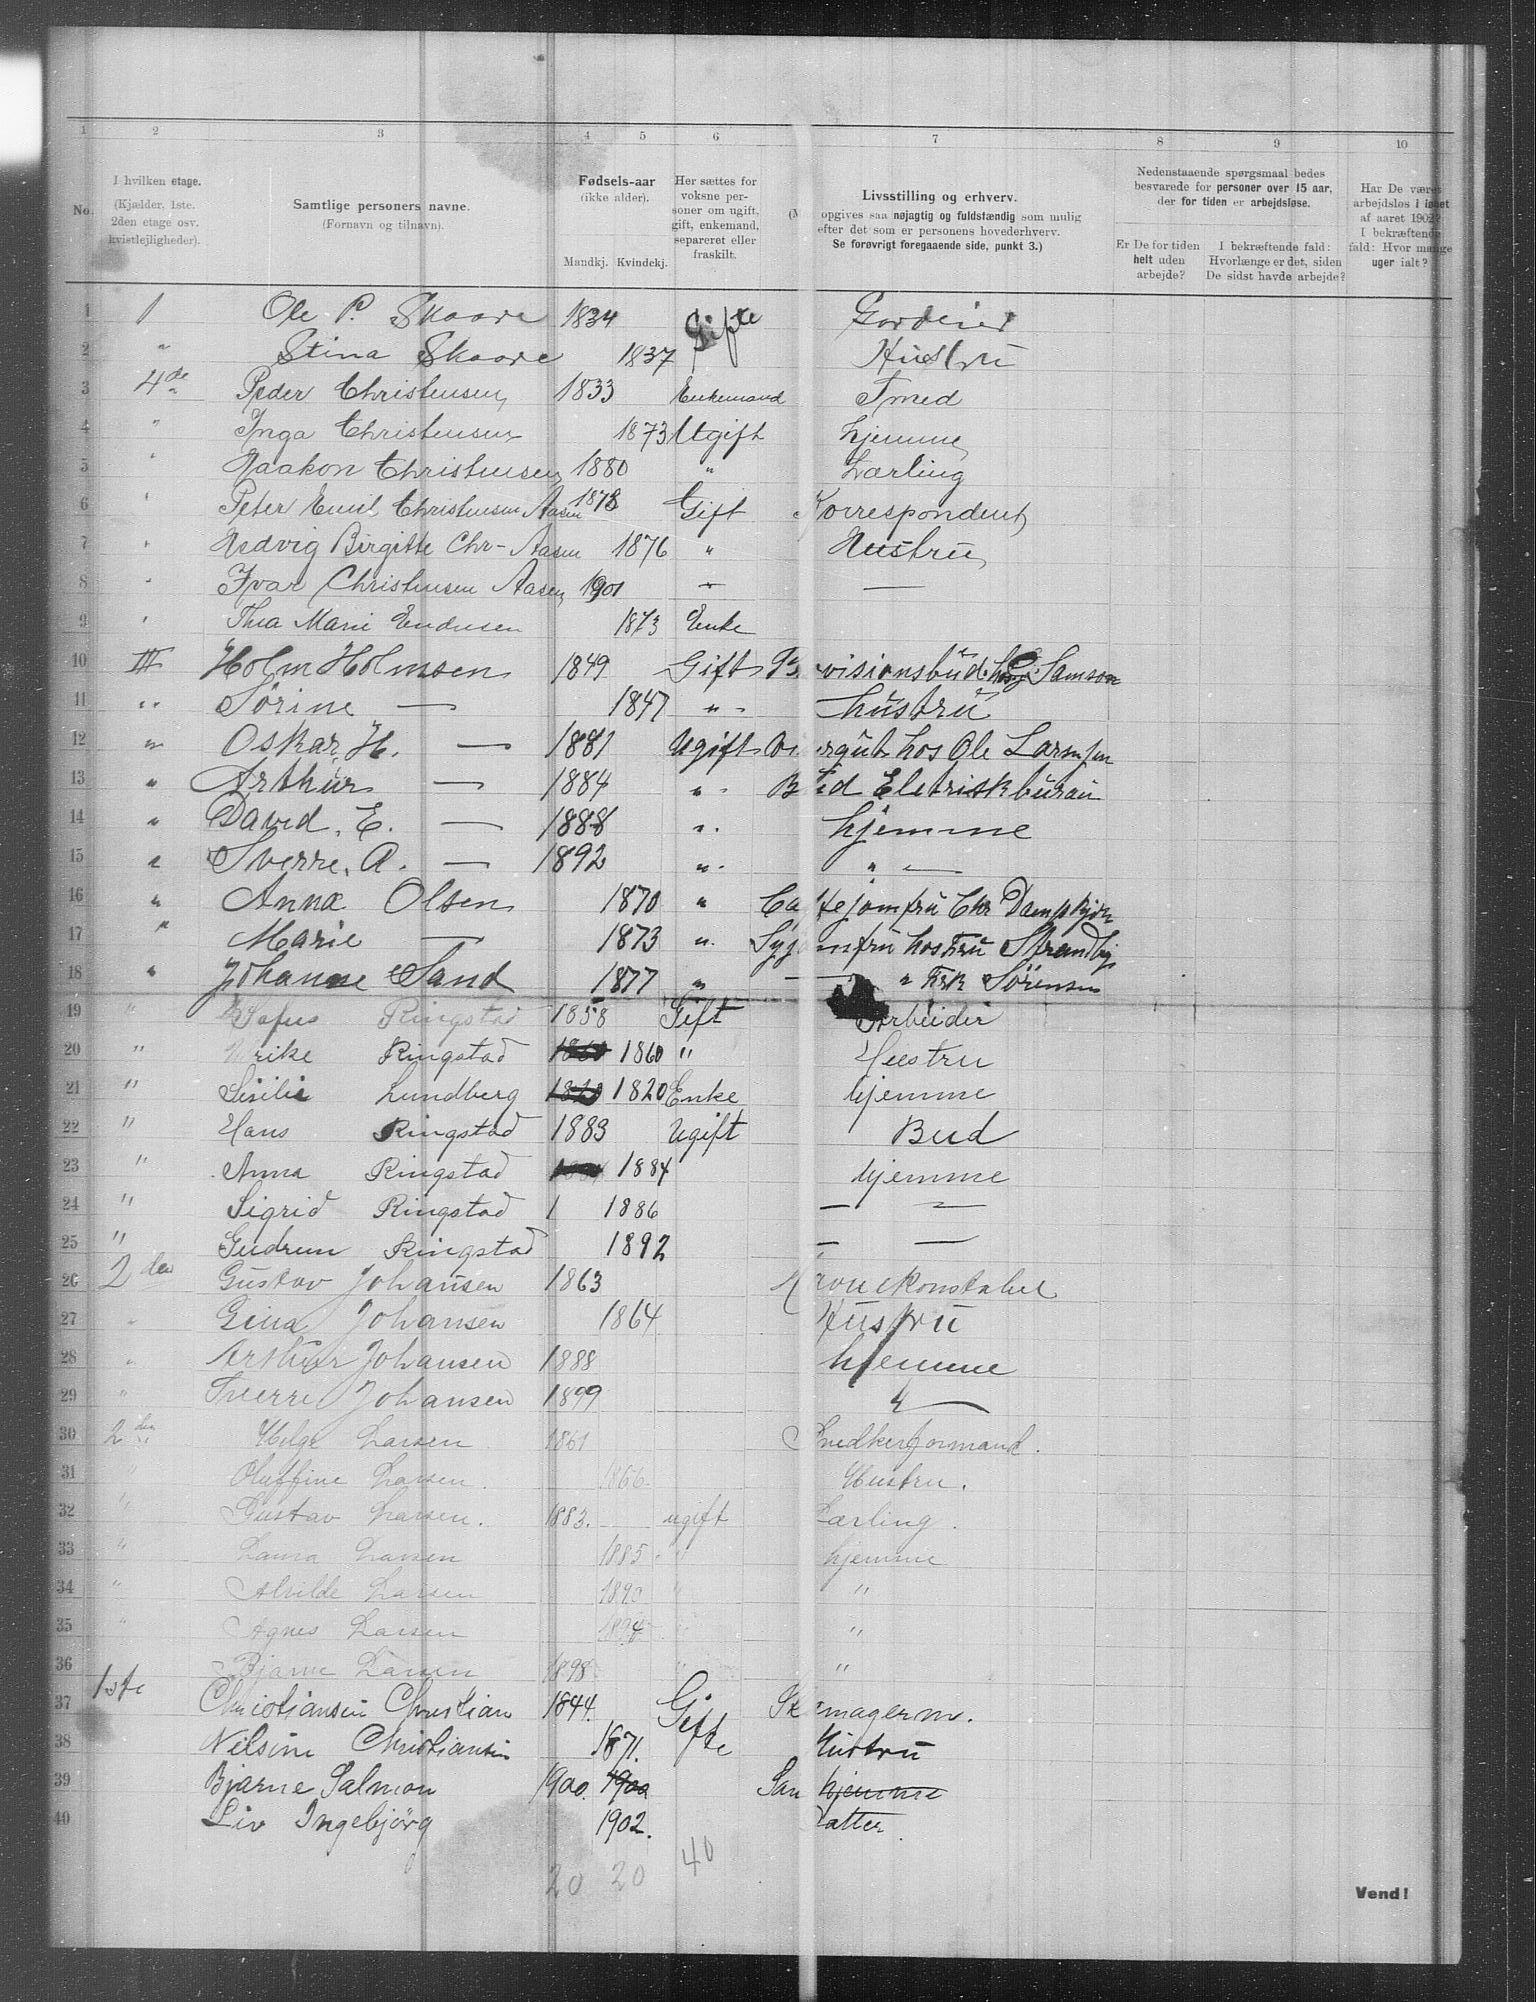 1 2 3 4 5 6 7 8 9 10
No. I hvilken etage. (Kjælder, 1ste. 2den etage osv. kvistlejligheder). Samtlige personers navne. (Fornavn og tilnavn). Fødsels-aar (ikke alder). Mandkj. Kvindekj. Her sættes for voksne personer om ugift, gift, enkemand, separeret eller fraskilt. Livsstilling og erhverv. opgives saa nøjagtig og fuldstændig som mulig efter det som er personens hovederhverv. Se forøvrigt foregaaende side, punkt 3.) Nedenstaaende spørgsmaal bedes besvarede for personer over 15 aar, der for tiden er arbejdsløse. Er De for tiden helt uden arbejde? I bekræftende fald: Hvorlænge er det, siden De sidst havde arbejde? Har De været arbejdsløs i løbet af aaret 1902? I bekræftende fald: Hvor mange uger ialt?
1 1 Ole P. Skaare 1834 Gifte Gordeier
2 " Stina Skaare 1837 Hustru
3 4de Peder Christensen 1833 Enkemand Smed
4 " Inga Christensen 1873 Ugift hjemme
5 " Haakon Christensen 1880 " Lærling
6 " Peter Emil Christensen Aasen 1878 Gift Korrespondent
7 " Hedvig Birgitte Chr- Aasen 1876 " Hustru
8 " Ivar Christensen Aasen 1901 " —
9 " Thea Marie Endresen 1873 Enke
10 III Holm Holmsen 1849 Gift visionsbüd hos Samson
11 " Sørine — 1847 " hüstrü
12 " Oskar, H. — 1881 Ugift hos Ole Larsen
13 " Arthür — 1884 " Büd Eletriskbürau
14 " David, E. — 1888 " hjemme
15 " Sverre, A. — 1892 " " —
16 " Anna Olsen 1870 " Caffejomfrü Chr Dampkjøk
17 " Marie — 1873 " Syjomfrü hos Frü Strandbj
18 " Johanne Sand 1877 " — " Frk Sørensen
19 " Ringstad 1858 Gift Arbeider
20 " Ulrike Ringstad 1860 " Hustru
21 " Sisilie Lundberg 1820 Enke hjemme
22 " Hans Ringstad 1883 Ugift Bud
23 " Anna Ringstad 1884 hjemme
24 " Sigrid Ringstad 1 1886 — —
25 " Gudrun Ringstad 1892 — —
26 2den Gustav Johansen 1863 Havnekonstabel
27 " Gina Johansen 1864 Hustru
28 " Arthur Johansen 1888 hjemme
29 " Sverre Johansen 1899 "
30 2den Helge Larsen 1861 Snedkerformand.
31 " Oluffine Larsen. 1866. Hustru.
32 " Gustav Larsen. 1883. ugift Lærling.
33 " Laura Larsen 1885 " hjemme
34 " Alvilde Larsen 1890 " "
35 " Agnes Larsen 1894 " "
36 Bjarne Larsen 1898 " "
37 1ste Christiansen Christian 1844. Gifte Skomagerm.
38 Nilsine Christiansen 1871. Hustru
39 Bjarne Salmon 1900. 1900 Søn hjemme
40 Liv Ingebjörg 1902. Datter
20 20 40
Vend!